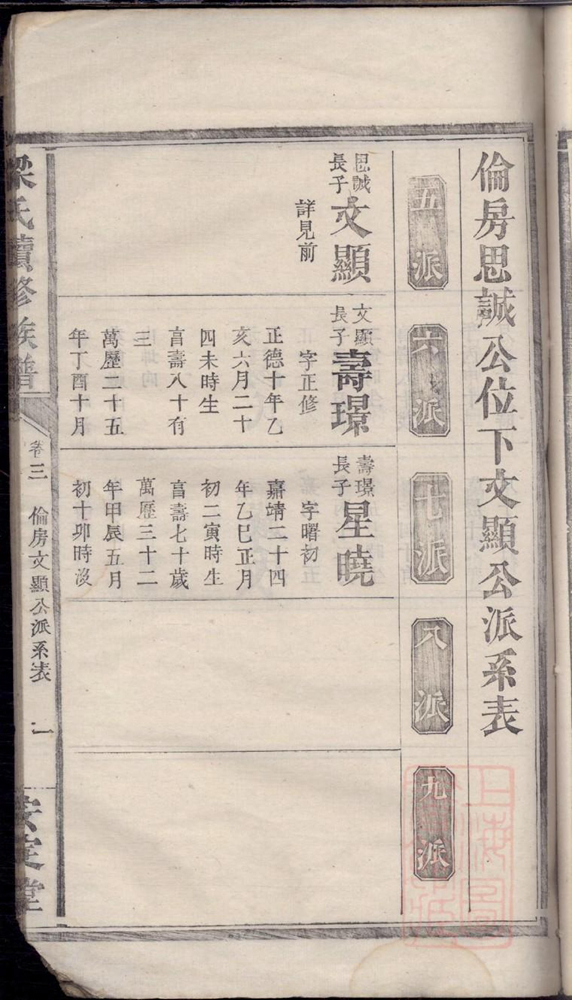 倫房思誠公位下文顯公派系表
五派
六派
七派
八派
九派
思誠
長子
文顯
詳見前
文顯
長子
壽璟
字正修
正德十年乙
亥六月二十
四未時生
享壽八十有
三
萬歷二十五
年丁酉十月
壽璟
長子
星曉
字曙初
嘉靖二十四
年乙巳正月
初二寅時生
享壽七十歲
萬歷三十二
年甲辰五月
初十卯時沒
梁氏續修族譜
卷三
倫房文顯公派系表
一
安定堂